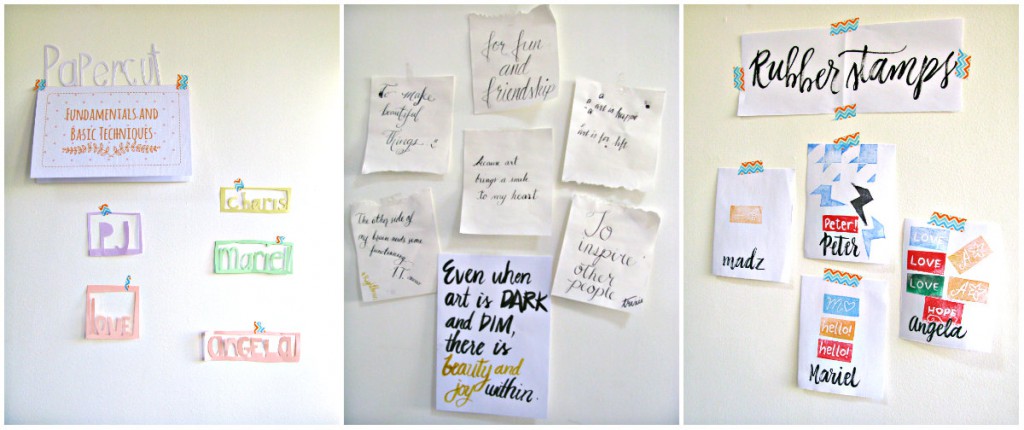 Papercut
FUNDAMENTALS AND
BASIC TECHNIQUES
PJ
Charis
Mariel
LOVE
ANGELA
for fun
and
friendship
To make
beautiful
things.
art is for life
Because art
brings a smile
to my heart
The other side of
my brain needs some
functioning
To
inspire
other
people
Even when
art is DARK
and DIM,
there is
beauty and
joy within.
Rubber stamps
madz
Peter!
Peter
LOVE
LOVE
LOVE
HOPE
Angela
hello!
hello!
Mariel